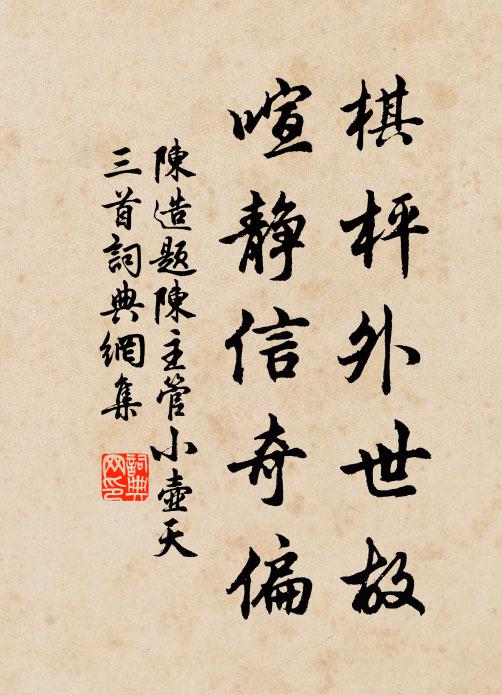 棋枰外世故
喧静信奇偏
陳造題陳主管小壺天
三首詞典網集
詞典
网印